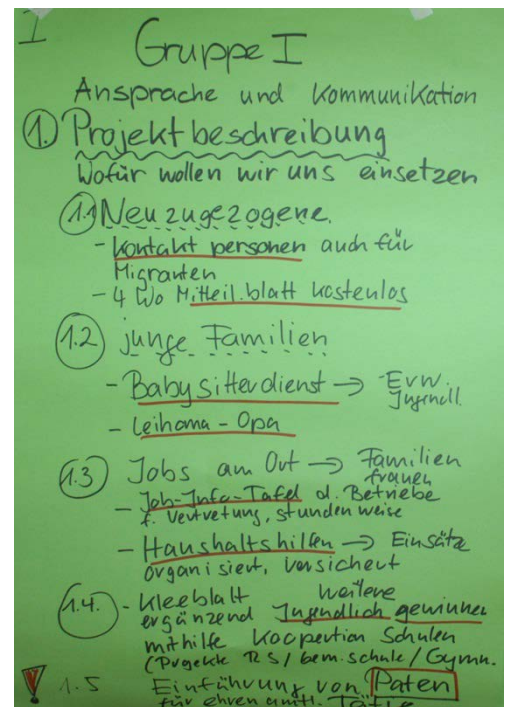 I
Gruppe I
Ansprache und Kommunikation
1. Projektbeschreibung
Wofür wollen wir uns einsetzen
1.1 Neuzugezogene
- Kontaktpersonen auch für
Migranten
- 4 Wo Mitteil.blatt kostenlos
1.2 junge Familien
- Babysitterdienst → Erw.
Jugendl.
- Leihoma - Opa
1.3 Jobs am Ort → Familien
frauen
- Job-Info-Tafel d. Betriebe
f. Vertretung, stundenweise
- Haushaltshilfen → Einsätze
organisiert, versichert
1.4. - Kleeblatt weitere
ergänzend Jugendlich gewinnen
mithilfe Koopertion Schulen
(Projekte RS / bem.schule / Gymn.
1.5 Einführung von Paten
für ehrenamtl. Tätig